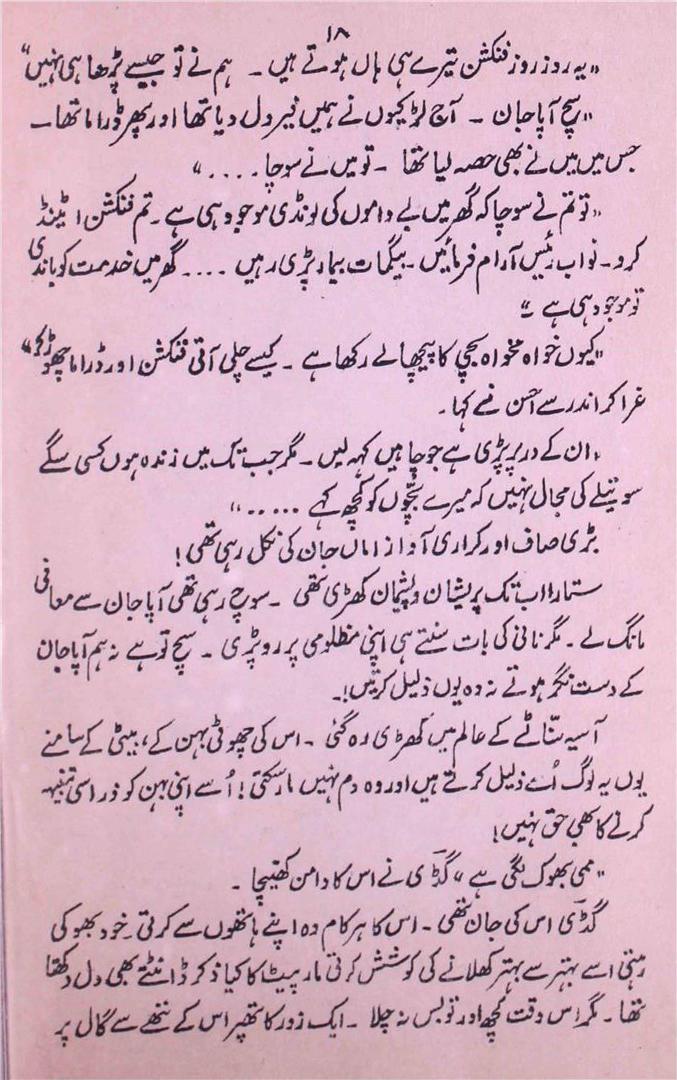 ۱۸
"یہ روز روز فنکشن تیرے ہی ہاں ہوتے ہیں ۔ ہم نے تو جیسے پڑھا ہی نہیں"
"سچ آپا جان ۔ آج لڑکیوں نے ہمیں فیرول دیا تھا اور پھر ڈراما تھا۔
جس میں میں نے بھی حصہ لیا تھا ۔ تو میں نے سوچا ۔۔۔۔"
"تو تم نے سوچا کہ گھر میں بے داموں کی لونڈی موجود ہی ہے ۔ تم فنکشن اٹینڈ
کرو ۔ نواب رئیس آرام فرمائیں ۔ بیگمات بیمار پڑی رہیں ۔۔۔۔ گھر میں خدمت کو باندی
تو موجود ہی ہے ۔"
"کیوں خواہ مخواہ بچی کا پیچھا لے رکھا ہے ۔ کیسے چلی آتی فنکشن اور ڈراما چھوڑ کر"
غرا کر اندر سے احسن نے کہا ۔
"ان کے در پر پڑی ہے جو چاہیں کہہ لیں ۔ مگر جب تک میں زندہ ہوں کسی سگے
سوتیلے کی مجال نہیں کہ میرے بچّوں کو کچھ کہے ۔۔۔۔۔"
بڑی صاف اور کراری آواز اماں جان کی نکل رہی تھی !
ستارا اب تک پریشان و پشیمان کھڑی تھی ۔ سوچ رہی تھی آپا جان سے معافی
مانگ لے ۔ مگر نانی کی بات سنتے ہی اپنی مظلومی پر رو پڑی ۔ سچ تو ہے نہ ہم آپا جان
کے دست نگر ہوتے نہ وہ یوں ذلیل کرتیں !۔
آسیہ سنّاٹے کے عالم میں کھڑی رہ گئی ۔ اس کی چھوٹی بہن کے، بیٹی کے سامنے
یوں یہ لوگ اُسے ذلیل کرتے ہیں اور وہ دم نہیں مار سکتی ! اُسے اپنی بہن کو ذرا سی تنبیہہ
کرنے کا بھی حق نہیں !
"ممی بھوک لگی ہے" گڈّی نے اس کا دامن کھینچا ۔
گڈّی اس کی جان تھی ۔ اس کا ہر کام وہ اپنے ہاتھوں سے کرتی ۔ خود بھوکی
رہتی اسے بہتر سے بہتر کھلانے کی کوشش کرتی مار پیٹ کا کیا ذکر ڈانٹتے بھی دل دکھتا
تھا ۔ مگر اس وقت کچھ اور تو بس نہ چلا ۔ ایک زور کا تھپڑ اس کے ننھے سے گال پر